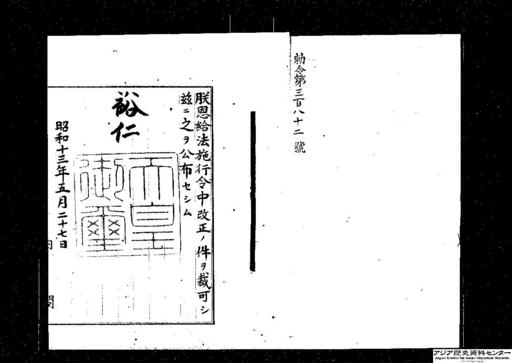 勅令第三百八十二號
朕恩給法施行令中改正ノ件ヲ裁可シ
茲ニ之ヲ公布セシム
裕仁
天皇御璽
昭和十三年五月二十七日
内閣
アジア歴史資料センター
Japan Center for Asian Historical Records